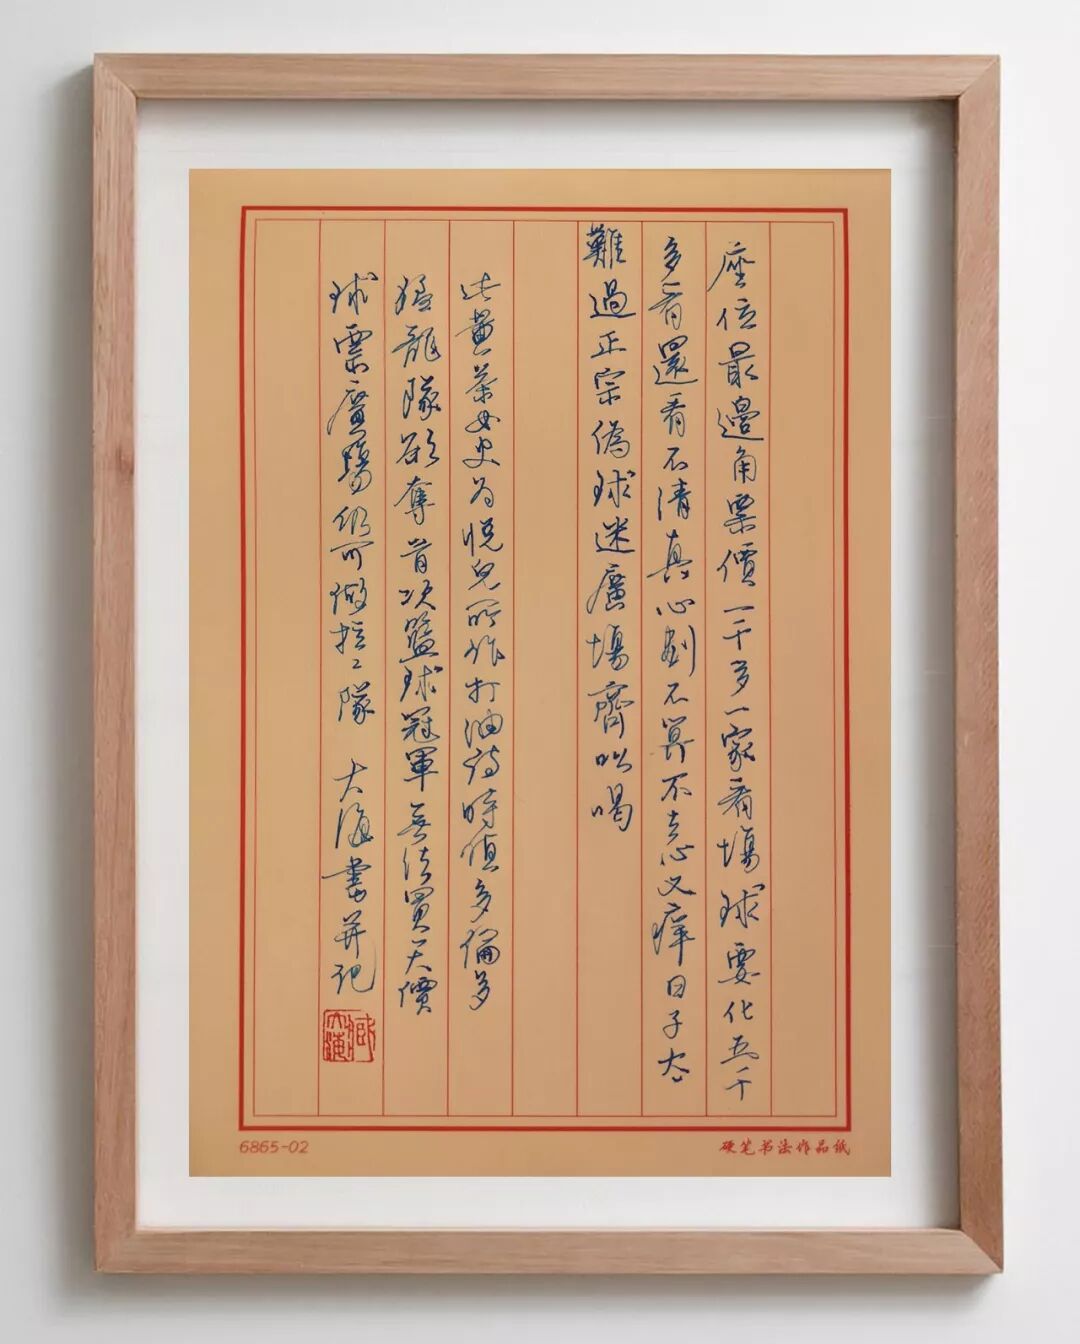 座位最邊角票價一千多一家看場球要化五千
多看還看不清真心劃不算不去心又痒日子太
難過正宗偽球迷廣場齊吆喝
此黃茶女史为悅兒所作打油詩時值多倫多
猛龍隊欲奪首次籃球冠軍無法買天價
球票廣場仍可做拉々隊 大海書并記
6865-02
硬笔书法作品纸